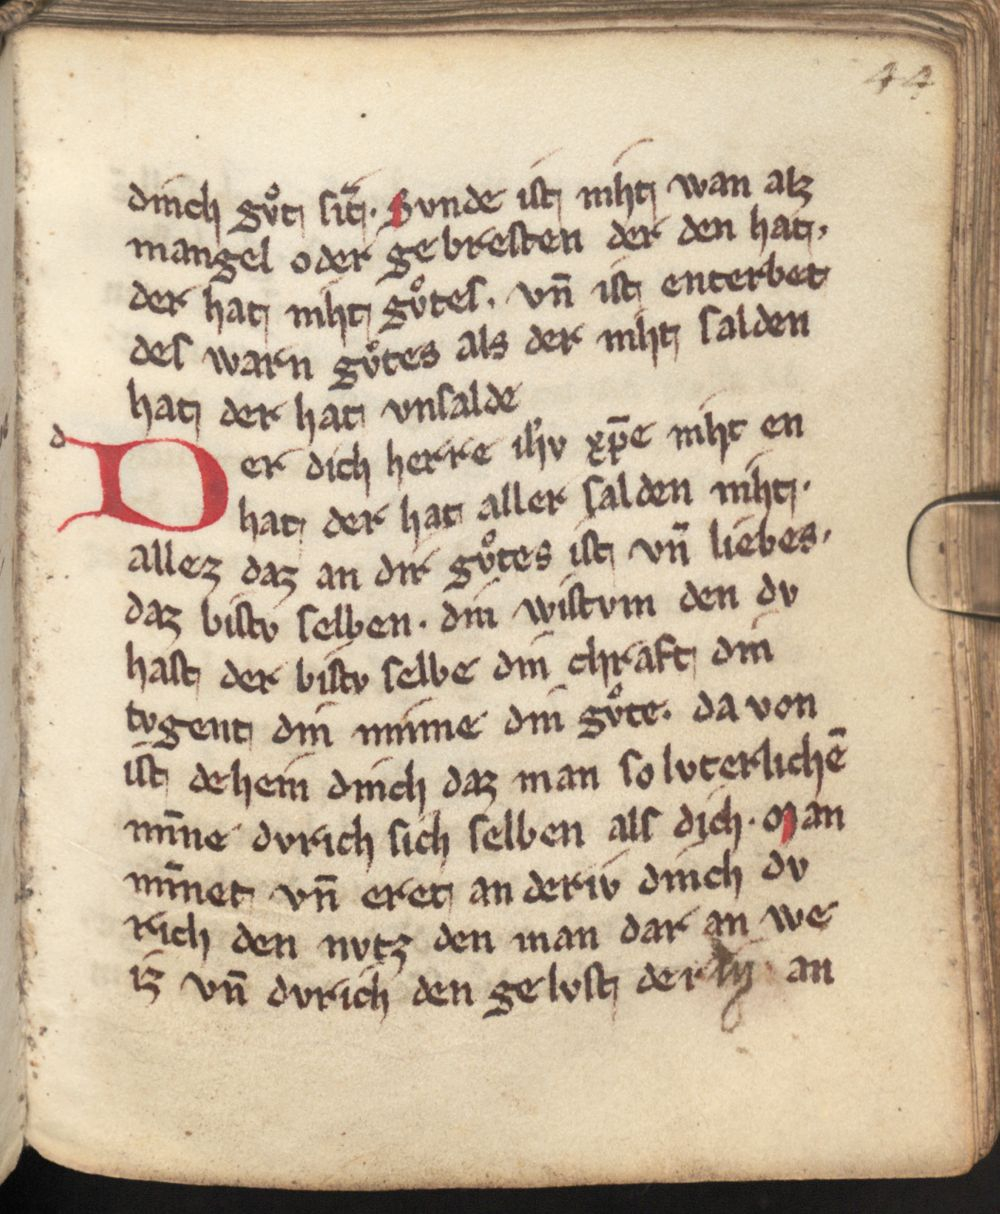 44
dinch gůt sīt. Svnde ist niht wan alz
mangel oder gebresten der den hat.
der hat niht gůtes. vn̄ ist enterbet
des warn gůtes als der niht salden
hat der hat vnsalde
d
Der dich herre ih̄v xp̄e niht en
hat der hat aller salden niht.
allez daz an dir gůtes ist vn̄ liebes.
daz bistv selben. din wistvm den dv
hast der bistv selbe din chraft din
tvgent din minne din gůte. da von
ist dehein dinch daz man so lvterlichē
mīne dvrich sich selben als dich. Man
mīnet vn̄ eret anderiv dinch dv
rich den nvtz den man dar an we
iz vn̄ dvrich den gelvst der an